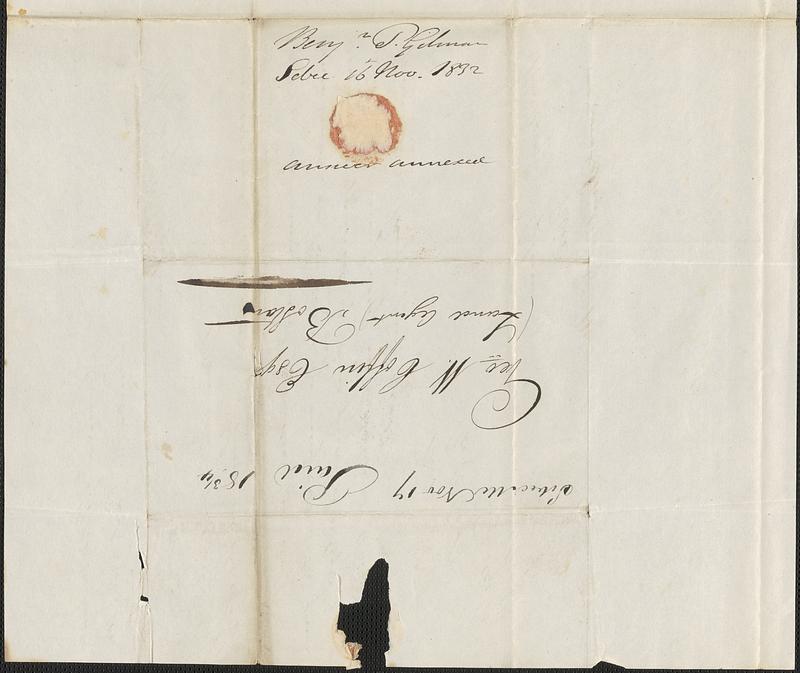 Benjn. P. Gilman
Sebec 16 Nov. 1832
answer annexed
Nov 17 Paid 18¾
Geo. W. Coffin Esqr
(Land Agent) Boston